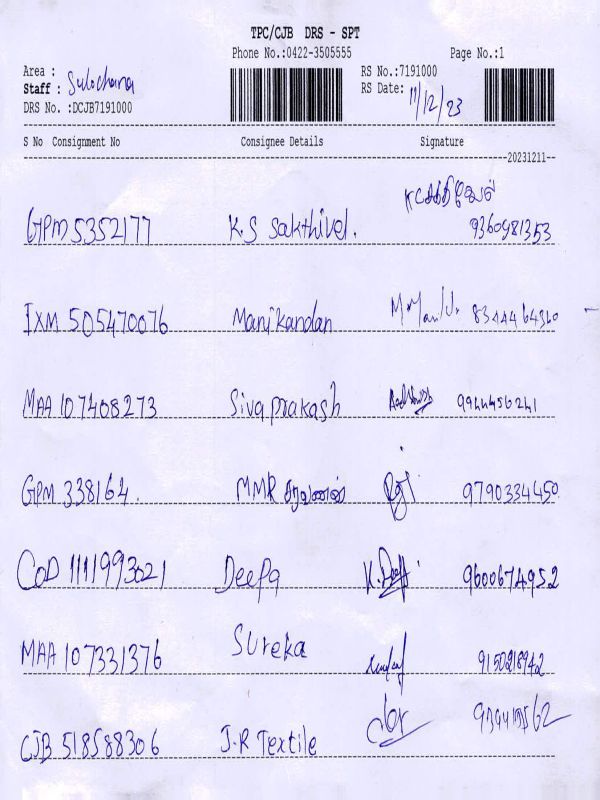 TPC/CJB DRS - SPT
Phone No.:0422-3505555 Page No.:1
Area :
Staff : Sulochana
DRS No. :DCJB7191000
RS No.:7191000
RS Date: 11/12/23
S No Consignment No Consignee Details Signature
20231211--
GPM 5352177 K.S Sakthivel.
IXM 505470076 Manikandan
MAA 107408273 Sivaprakash
GPM 338164. MMR சரவணன் 9790334450
COD 1111993021 Deepa 9600674952
MAA 107331376 Sureka
CJB 518588306 J.R Textile